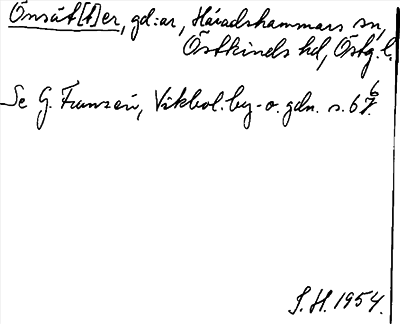 Önsät[t]er, gd:ar, Häradshammars sn,
Östkinds hd, Östg. l.
Se G. Franzén, Vikbol. by- o. gdn. s. 67.
S.H. 1954.